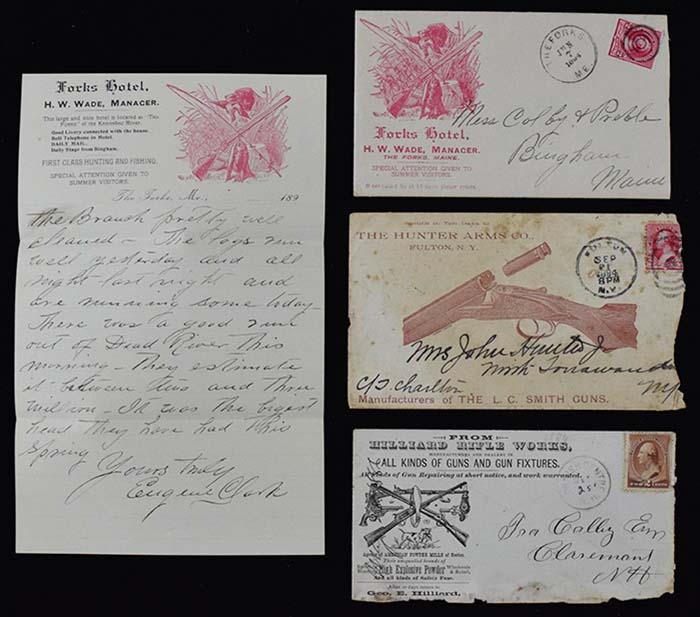 Forks Hotel,
H. W. WADE, MANAGER.
This large and nice hotel is located at "The
Forks" of the Kennebec River.
Good Livery connected with the house.
Bell Telephone in Hotel.
DAILY MAIL.
Daily Stage from Bingham.
FIRST CLASS HUNTING AND FISHING.
SPECIAL ATTENTION GIVEN TO
SUMMER VISITORS.
The Forks, Me., 189
the Branch pretty well
cleaned - The logs run
well yesterday and all
night last night and
are running some today -
There was a good run
out of Dead River this
morning - They estimate
it between two and three
million - It was the bigest
head they have had this
spring
Yours truly
Eugene Clark
THE FORKS
JUN
7
1894
ME.
Forks Hotel,
H. W. WADE, MANAGER.
THE FORKS, MAINE.
SPECIAL ATTENTION GIVEN TO
SUMMER VISITORS.
If not called for in 10 days please return.
Mess Colby & Preble
Bingham
Maine
THE HUNTER ARMS CO.
FULTON, N.Y.
FULTON
SEP
21
1894
8PM
N.Y.
Mrs John Hunter Jr
North Tonawanda
c/o Charlton
NY
Manufacturers of THE L. C. SMITH GUNS.
FROM
HILLIARD RIFLE WORKS,
MANUFACTURERS AND DEALERS IN
ALL KINDS OF GUNS AND GUN FIXTURES.
All kinds of Gun Repairing at short notice, and work warranted.
Agents of AMERICAN POWDER MILLS of Boston.
Their unequalled brands of
High Explosive Powder Wholesale & Retail.
And all kinds of Safety Fuse.
days return to
Geo. E. Hilliard,
TWO 2 CENTS
Ira Colby Esq
Claremont
NH